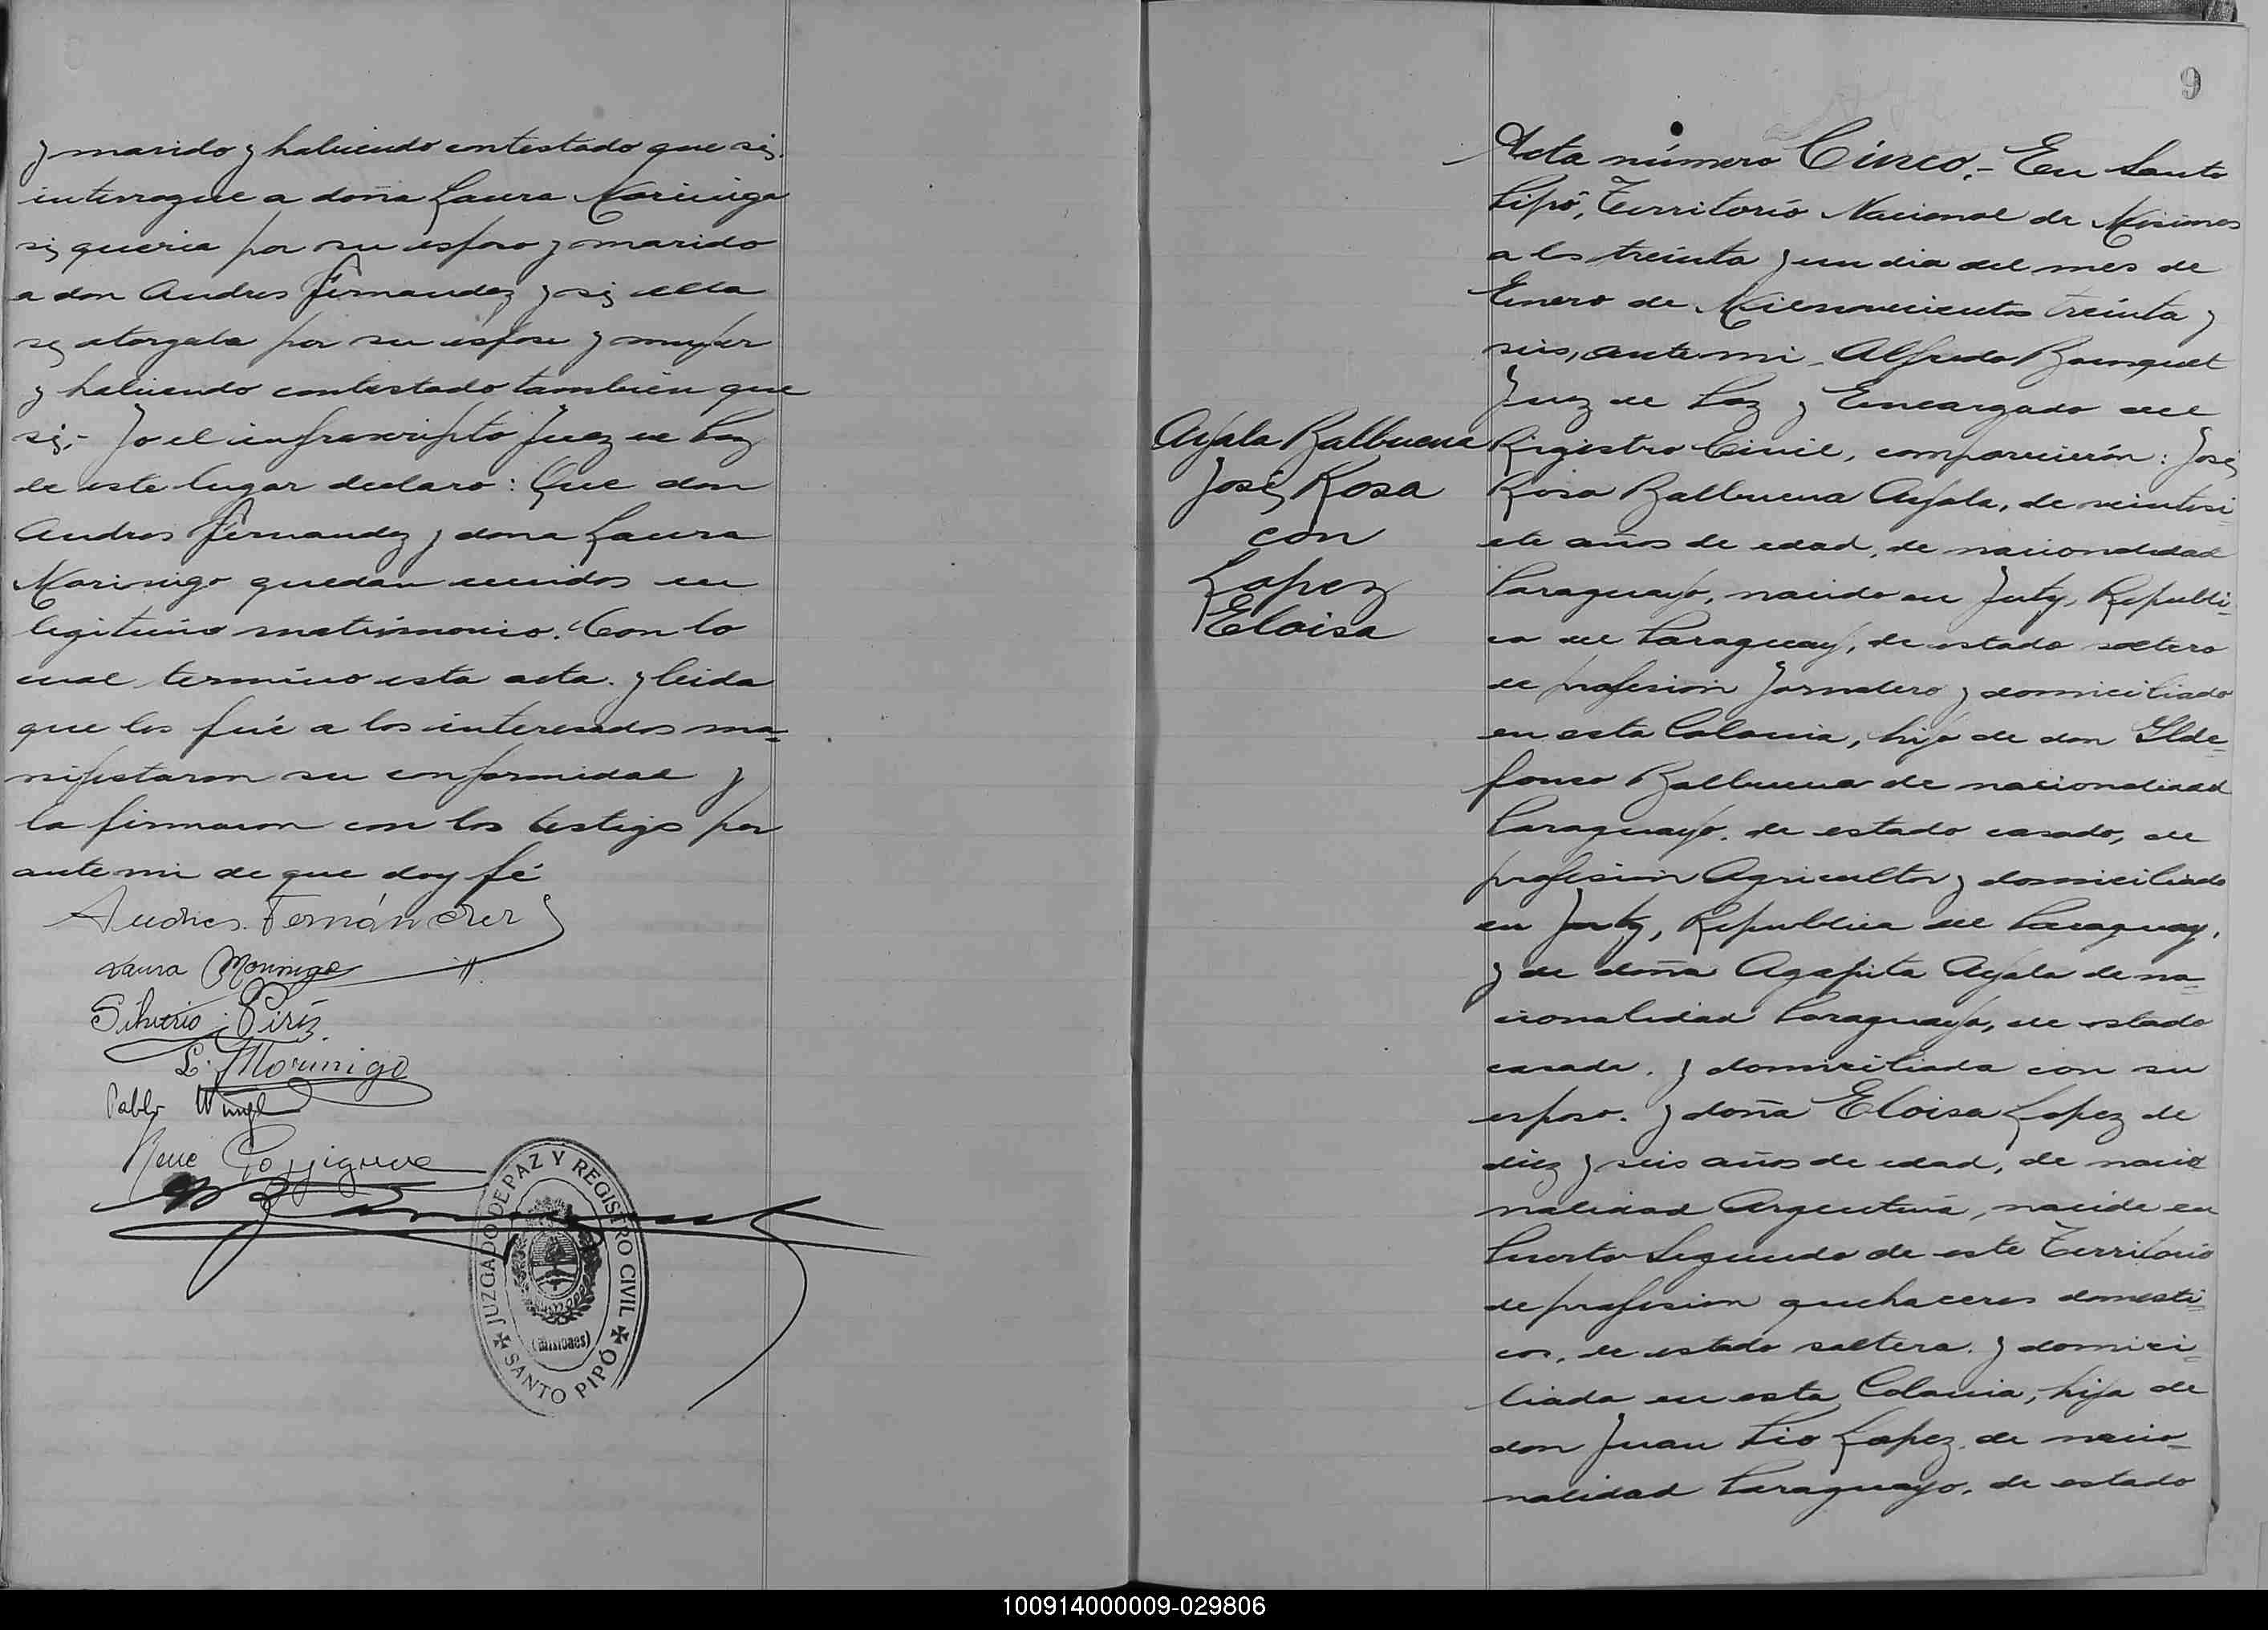 y marido y habiendo contestado que si,
interrogue a doña Laura Morinigo
si queria por su esposo y marido
a don Andres Fernandez y si ella
se otorgaba por su esposa y mujer
y habiendo contestado tambien que
si,- Yo el infrascripto Juez de Paz
de este lugar declaro: Que don
Andres Fernandez y dona Laura
Morinigo quedan unidos en
legitimo matrimonio. Con lo
cual termino esta acta. y leida
que les fué a los interesados ma=
nifestaron su conformidad y
la firmaron con los testigos por
ante mi de que doy fé
Andres Fernández
Laura Morinigo
Silverio Piriz
L. Morinigo
Pablo
René
JUZGADO DE PAZ Y REGISTRO CIVIL
(Misiones)
SANTO PIPÓ
9
Ayala Balbuena
José Rosa
con
Lopez
Eloisa
Acta número Cinco.- En Santo
Pipó, Territorio Nacional de Misiones
a los treinta y un dia del mes de
Enero de Milnovecientos treinta y
seis, ante mi Alfredo
Juez de Paz y Encargado del
Rigistro Civil, comparecieron: José
Rosa Balbuena Ayala, de veintisi=
ete años de edad, de nacionalidad
Paraguayo, nacido en Juty, Republi=
ca del Paraguay, de estado soltero
de profesion Jornalero y domiciliado
en esta Colonia, hijo de don Ilde=
fonso Balbuena de nacionalidad
Paraguayo. de estado casado, de
profesion Agricultor y domiciliado
en Juty, Republica del Paraguay,
y de doña Agapita Ayala de na=
cionalidad Paraguaya, de estado
casada. y domiciliada con su
esposo. y doña Eloisa Lopez de
diez y seis años de edad, de nacio
nalidad Argentina, nacida en
Puerto Segundo de este Territorio
de profesion quehaceres domesti=
cos, de estado soltera. y domici=
liada en esta Colonia, hija de
don Juan Pio Lopez de nacio=
nalidad Paraguayo. de estado
100914000009-029806